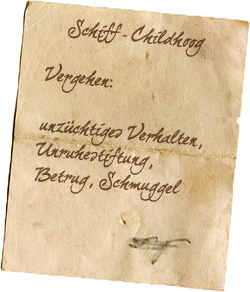 Schiff - Childhoog
Vergehen:
unzüchtiges Verhalten,
Unruhestiftung,
Betrug, Schmuggel